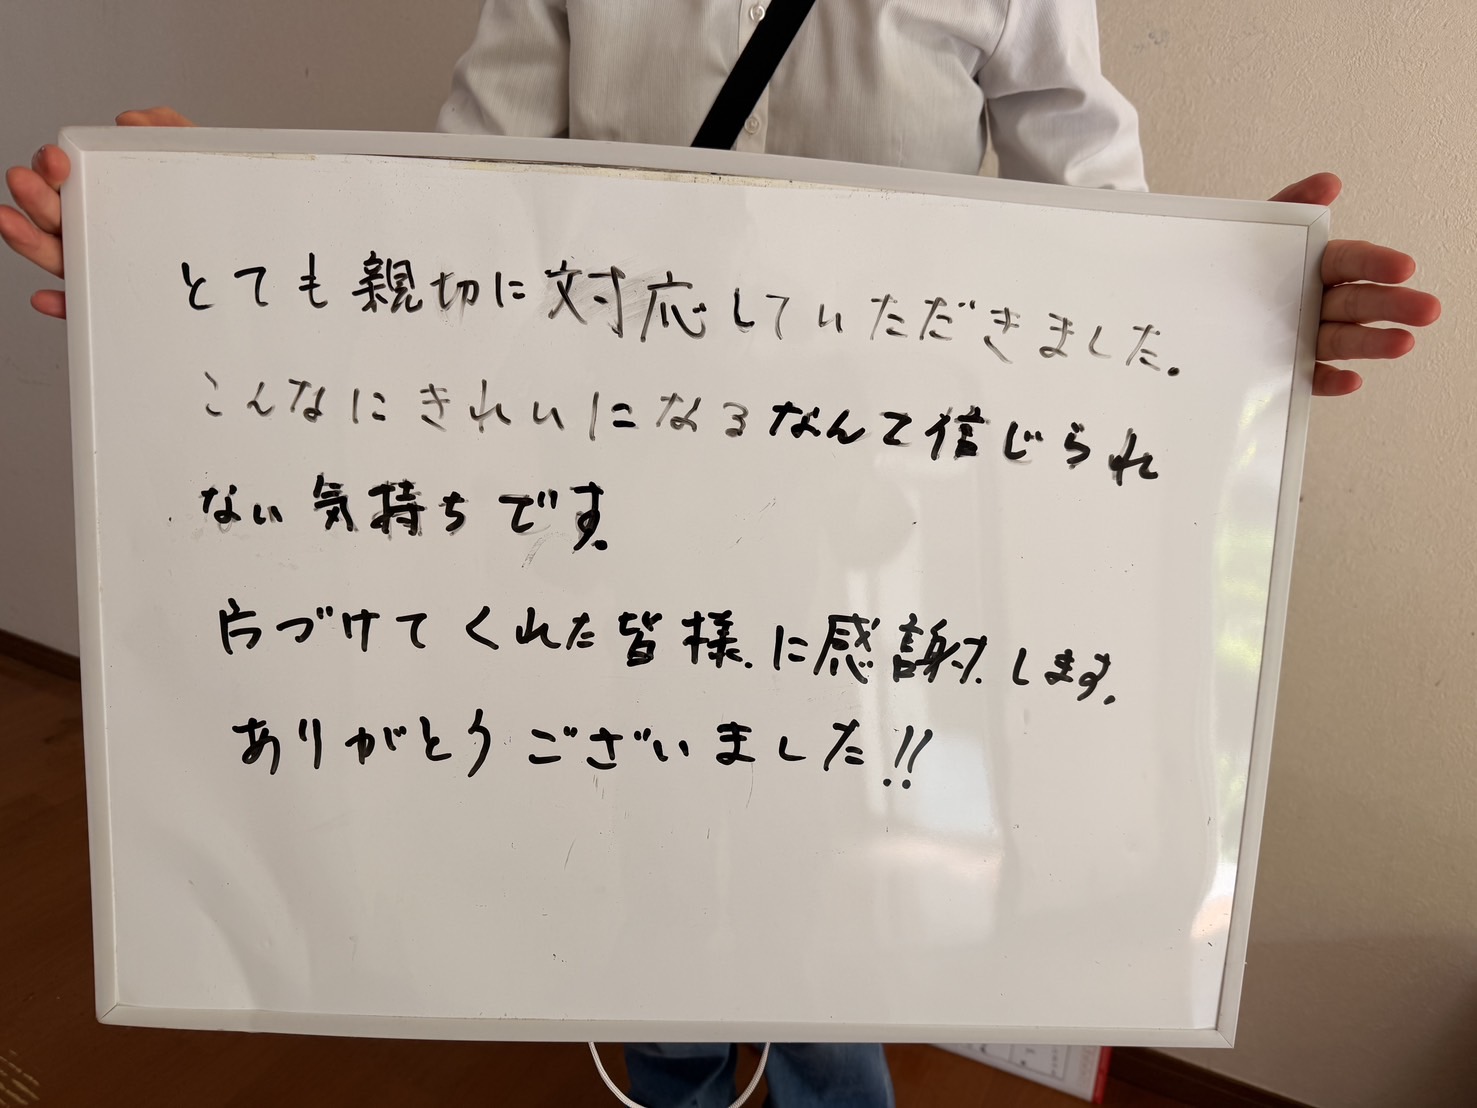 とても親切に対応していただきました。
こんなにきれいになるなんて信じられ
ない気持ちです。
片づけてくれた皆様に感謝します。
ありがとうございました!!